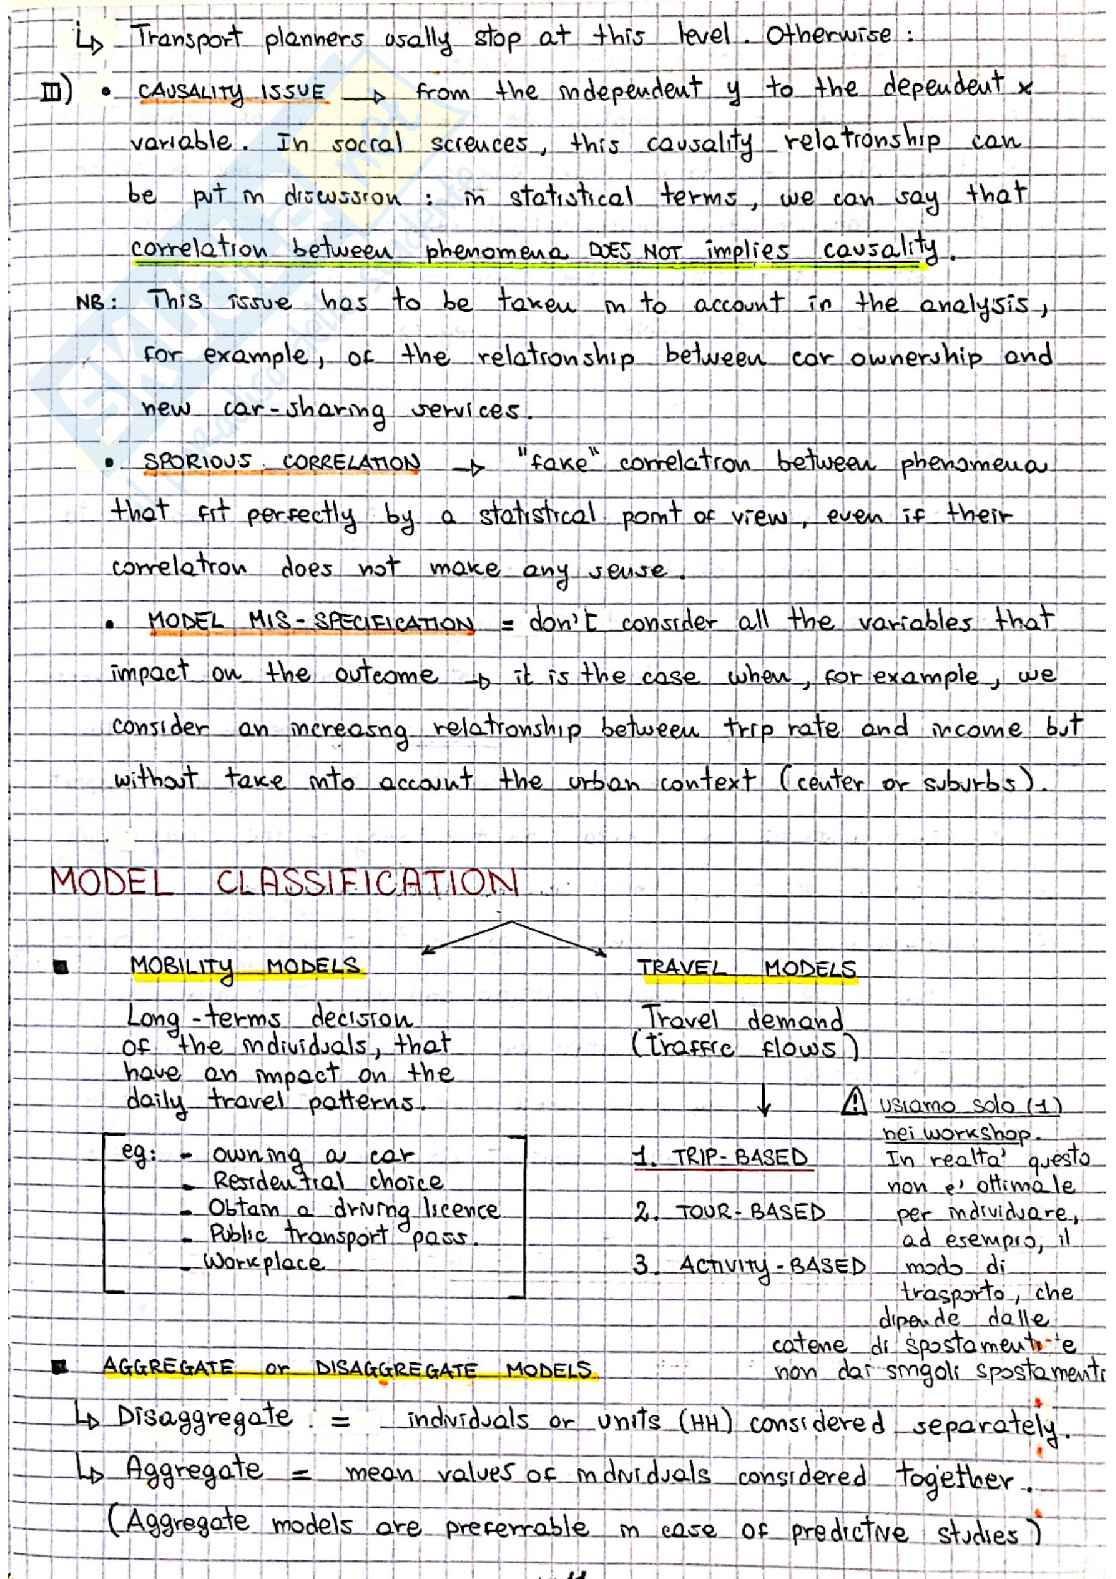 ↳ Transport planners usally stop at this level. Otherwise:
III) • CAUSALITY ISSUE → from the independent y to the dependent x
variable. In social sciences, this causality relationship can
be put in discussion: in statistical terms, we can say that
correlation between phenomena DOES NOT implies causality.
NB: This issue has to be taken in to account in the analysis,
for example, of the relationship between car ownership and
new car-sharing services.
• SPORIOUS CORRELATION → "fake" correlation between phenomena
that fit perfectly by a statistical point of view, even if their
correlation does not make any sense.
• MODEL MIS-SPECIFICATION = don't consider all the variables that
impact on the outcome → it is the case when, for example, we
consider an increasng relationship between trip rate and income but
without take into account the urban context (center or suburbs).
MODEL CLASSIFICATION
■ MOBILITY MODELS
Long-terms decision
of the individuals, that
have an impact on the
daily travel patterns.
eg: - owning a car
- Residential choice
- Obtain a driving licence
- Public transport pass.
- Workplace
TRAVEL MODELS
Travel demand
(traffic flows)
↓
1. TRIP-BASED
2. TOUR-BASED
3. ACTIVITY-BASED
⚠ usiamo solo (1)
nei workshop.
In realta' questo
non e' ottimale
per individuare,
ad esempio, il
modo di
trasporto, che
dipende dalle
catene di spostamenti e
non dai singoli spostamenti
■ AGGREGATE or DISAGGREGATE MODELS
↳ Disaggregate = individuals or units (HH) considered separately.
↳ Aggregate = mean values of individuals considered together.
(Aggregate models are preferrable in case of predictive studies)